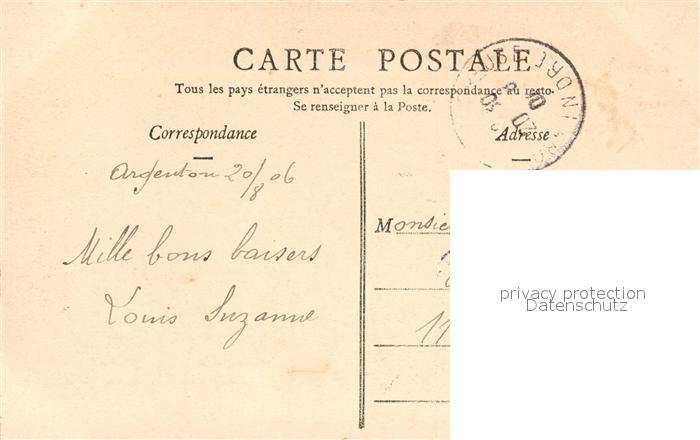 CARTE POSTALE
Tous les pays étrangers n'acceptent pas la correspondance au recto.
Se renseigner à la Poste.
Correspondance
Adresse
Argenton 20/8 06
Mille bons baisers
Louis Suzanne
Monsie
11
privacy protection
Datenschutz